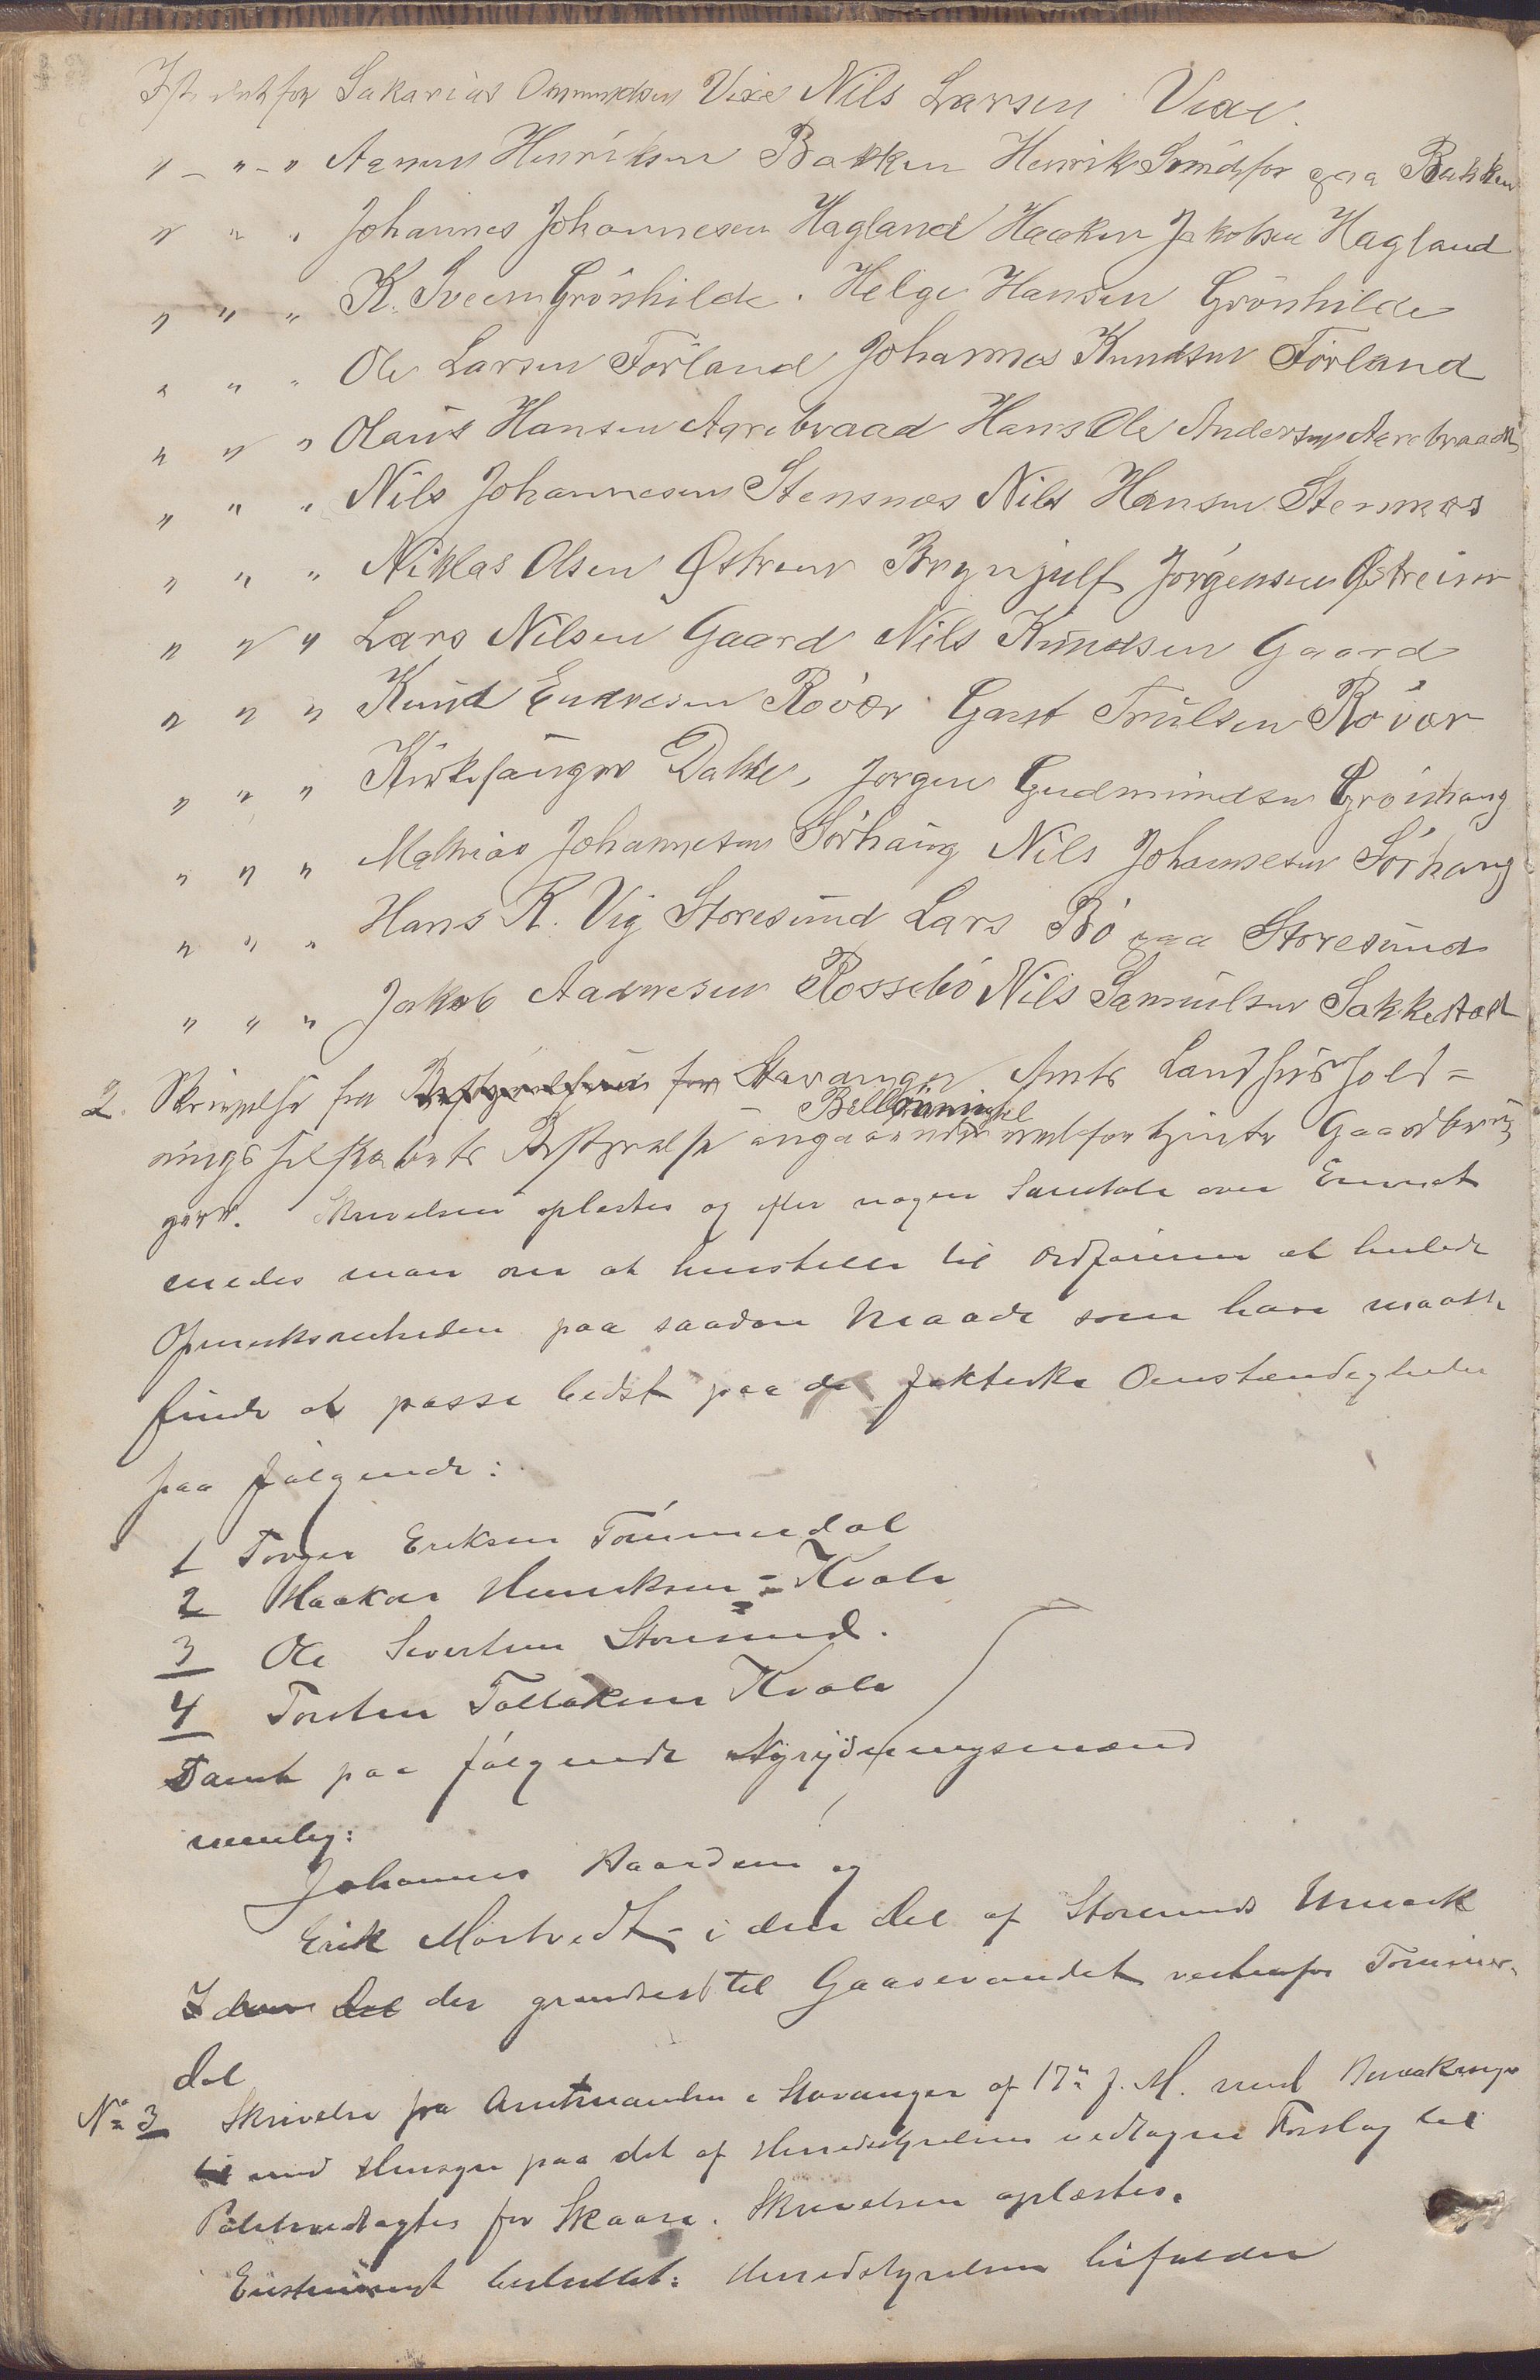 Isteden for Sakarias Omundsen Vixe Nils Larsen Vixe.
" – " – " Aanen Henriksen Bakken Henrik Smidsfor paa Bakken
" " " Johannes Johannesen Hagland Haaken Jakobsen Hagland
" " " K. Sveen Grönhilde. Helge Hansen Grönhilde
" " " Ole Larsen Förland Johannes Knudsen Förland
" " " Olaus Hansen Agrebraad Hans Ole Andersen Agrebraad
" " " Nils Johannesen Stensnæs Nils Hansen Stensnæs
" " " Niklas Olsen Østrem Brynjulf Jörgensen Østreim
" " " Lars Nilsen Gaard Nils Knudsen Gaard
" " " Knud Endresen Rövær Gaut Trulsen Rövær
" " " Kirkesanger Dahle, Jörgen Gudmundsen Grönhaug
" " " Mathias Johannesen Sörhaug Nils Johannesen Sörhaug
" " " Hans R. Vig Storesund Lars Bö paa Storesund
" " " Jakob Aadnesen Rossebö Nils Samuelsen Sakkestad
2. Skrivelse fra Bestyrelsen for Stavanger Amts Landhushold=
Bellönning
nings selskabets Bestyrelse angaaende velfortjente Gaardbru=
gere. Skrivelsen oplæstes og efter nogen Samtale over Emnet
enedes man om at henstille til Ordføreren at henlede
Opmerksomheden paa saadan Maade som han maatte
finde at passe bedst paa de faktiske Omstændigheder
paa følgende:
1 Torger Eriksen Tömmerdal
2 Haakon Henriksen = Kvale
3 Ole Sivertsen Storesund.
4 Torsten Tollaksen Kvale
Samt paa følgende Nyrydningsmænd
nemlig:
Johannes Haardem og
Erik Mörtvedt – i den Del af Storesunds Udmark
I den Del der grændser til Gaasevandet vestenfor Tömmer-
dal
No 3 Skrivelse fra Amtmanden i Stavanger af 17de f. M. med Bemærkninger
til med Hensyn paa det af Herredsstyrelsen vedtagne Forslag til
Politivedtægter for Skaare. Skrivelsen oplæstes.
Enstemmigt besluttet: Herredsstyrelsen bifalder